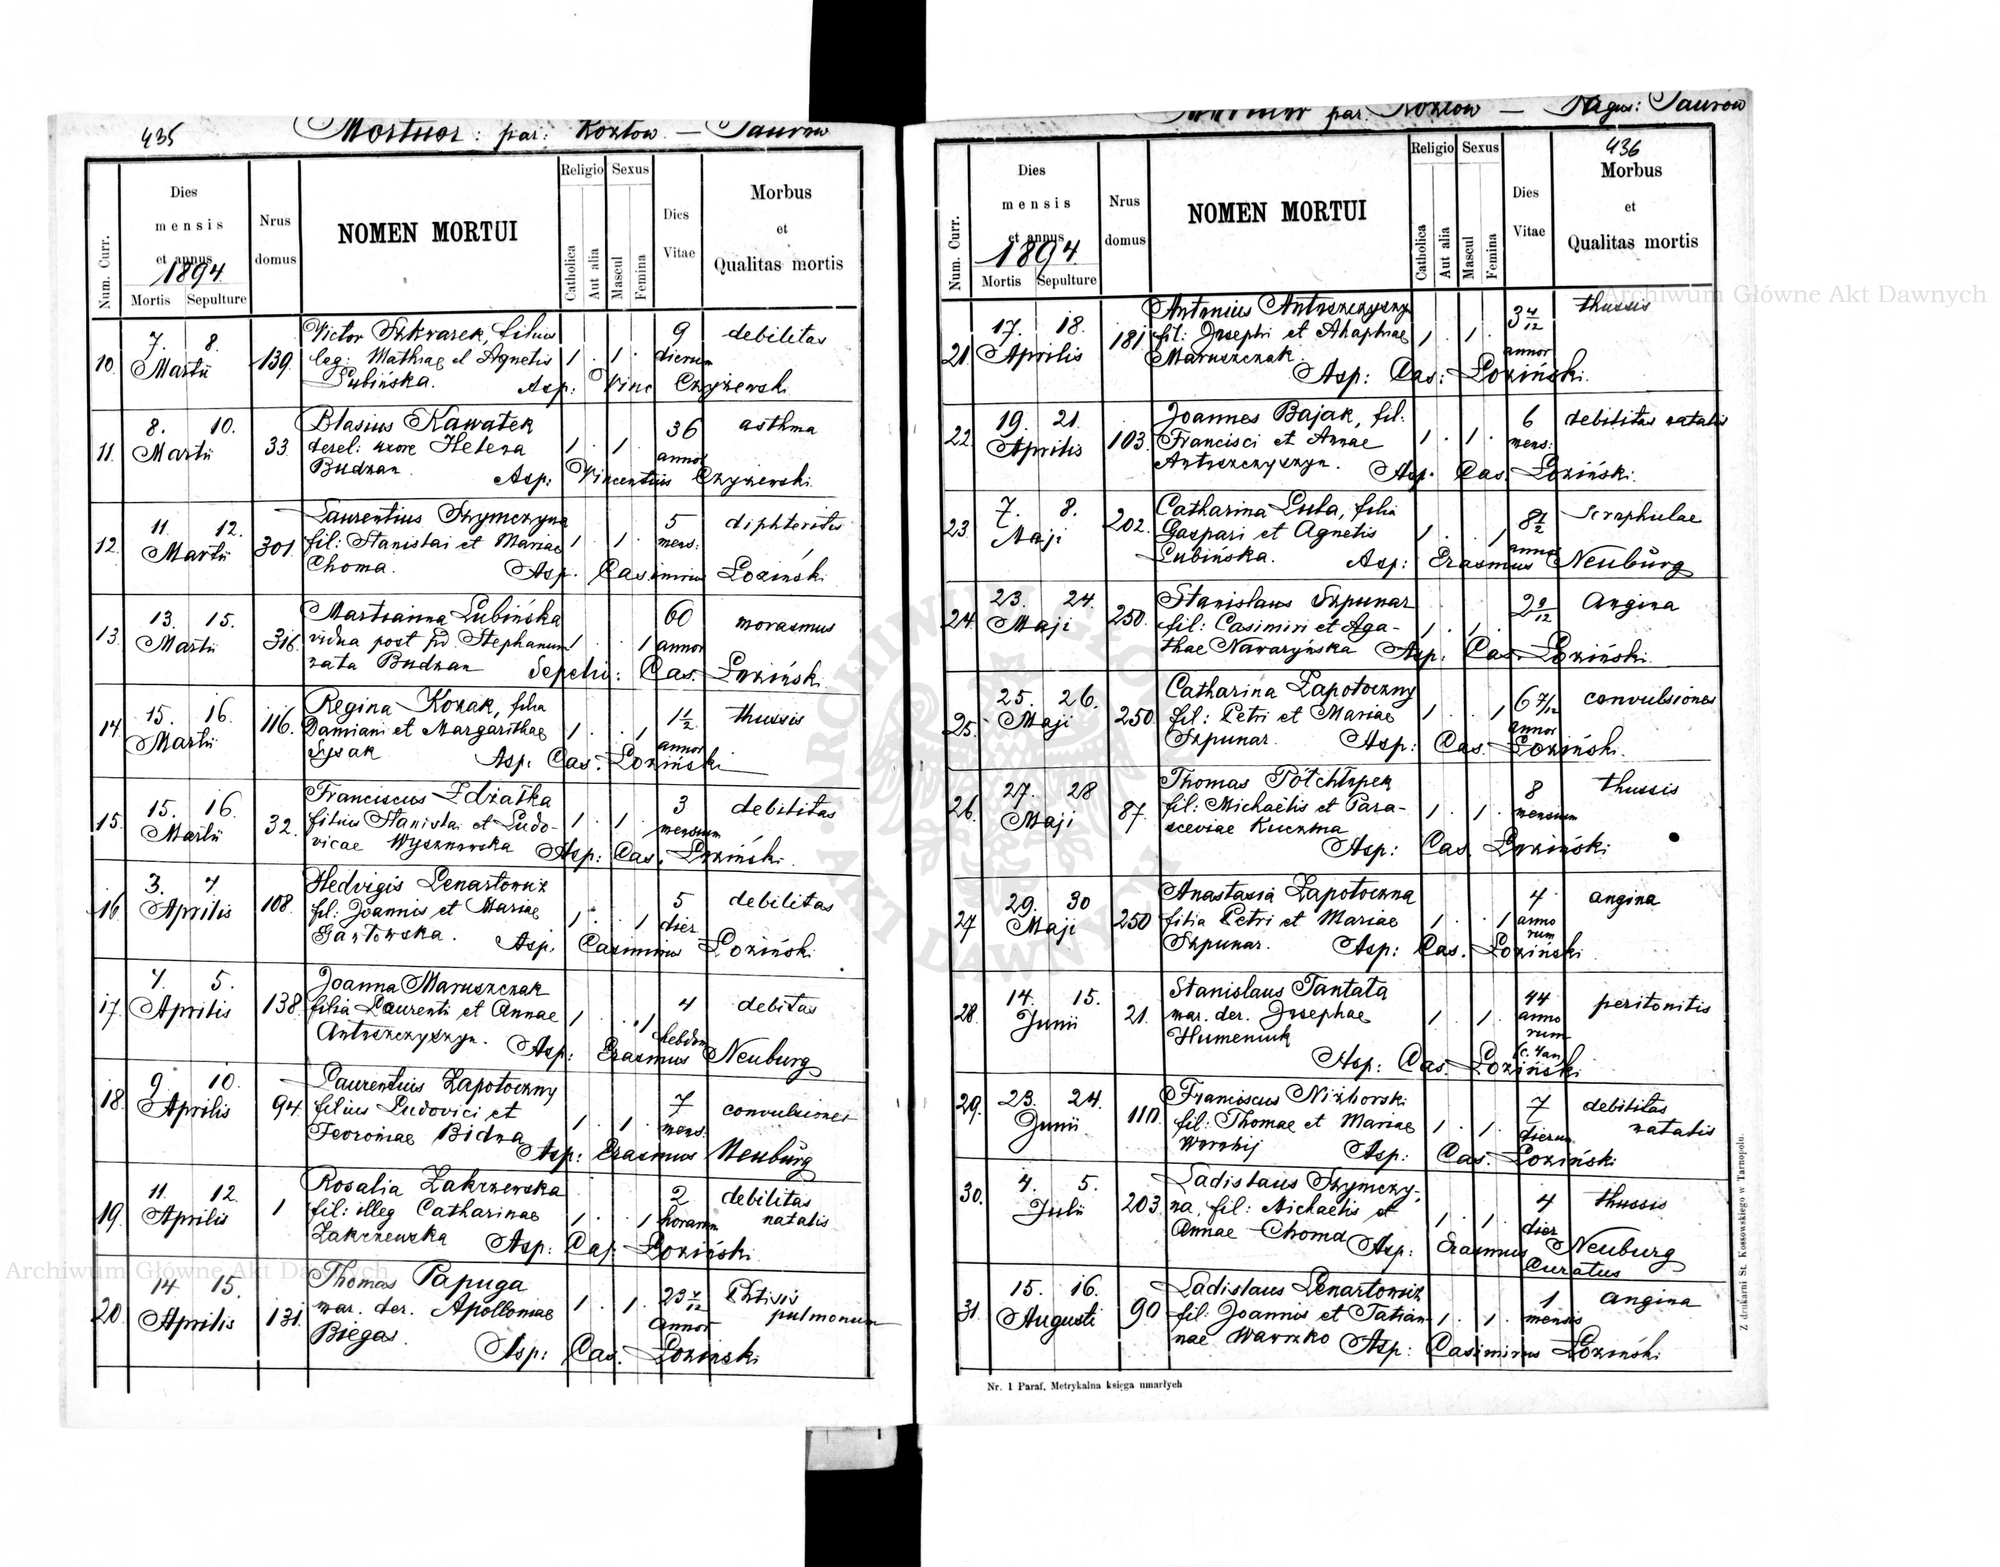 435
Mortuor: par: Kozłow — Taurow
Num. Curr.
Dies
mensis
et annus
1894
Mortis Sepulture
Nrus
domus
NOMEN MORTUI
Religio Sexus
Catholica
Aut alia
Mascul
Femina
Dies
Vitae
Morbus
et
Qualitas mortis
7. 8. Victor filius 9 debilitas
10. Martii 139. leg: Mathiae et Agnetis 1 . 1 . dierum
Lubińska. Asp: Vinc Czyżewski
8. 10. Blasius Kawałek 36 asthma
11. Martii 33 derel: uxore Helena 1 . 1 . annor
Budzan. Asp: Vincentius Czyżewski.
11. 12. Laurentius Szymczyna 5 diphteritis
12. Martii 301. fil: Stanislai et Mariae 1 . 1 . mens:
Choma. Asp. Casimirus Łoziński
13. 15. Marianna Lubińska 60 marasmus
13. Martii 316. vidua post Stephanum 1 . . 1 annor
nata Budzan Sepeliv: Cas. Łoziński.
15. 16. Regina Kozak, filia 1 1/2 thussis
14. Martii 116. Damiani et Margarithae 1 . . 1 annor
Lysak Asp: Cas. Łoziński
15. 16. Franciscus Zdziałka 3 debilitas
15. Martii 32. filius Stanislai et Ludo- 1 . 1 . mensium
vicae Wysznowska Asp: Cas. Łoziński.
3. 4 Hedvigis Lenartowicz 5 debilitas
16. Aprilis 108. fil: Joannis et Mariae 1 . . 1 dier
Gartowska. Asp. Casimirus Łoziński
4. 5. Joanna Maruszczak 4 debitas
17. Aprilis 138. filia Laurenti et Annae 1 . . 1 hebdom
Antoszczyszyn. Asp: Erasmus Neuburg
9. 10. Laurentius Zapotoczny 7 convulsiones
18. Aprilis 94. filius Ludovici et 1 . 1 . mens.
Feroniae Bidna Asp: Erasmus Neuburg
11. 12. Rosalia Zakrzewska 2 debilitas
19. Aprilis 1 fil: illeg Catharinae 1 . . 1 horarum natalis
Zakrzewska Asp: Cas. Łoziński.
14 15. Thomas Papuga 23 Phtisis
20. Aprilis 131. mar. der. Apolloniae 1 . 1 . annor pulmonum
Biegas. Asp: Cas. Łoziński
par. Kozłow — Taurow
436
Num. Curr.
Dies
mensis
et annus
1894.
Mortis Sepulture
Nrus
domus
NOMEN MORTUI
Religio Sexus
Catholica
Aut alia
Mascul
Femina
Dies
Vitae
Morbus
et
Qualitas mortis
17. 18. Antonius Antoszczyszyn 3 4/12 thussis
21. Aprilis 181 fil: Josephi et Ahaphiae 1 . 1 . annor
Maruszczak. Asp: Cas: Łoziński.
19. 21. Joannes Bajak, fil: 6 debilitas natalis
22. Aprilis 103. Francisci et Annae 1 . 1 . mens:
Antoszczyszyn. Asp. Cas. Łoziński.
7. 8. Catharina Luba, filia 8 1/2 Scrophulae
23. Maji 202. Gaspari et Agnetis 1 . . 1 annor
Lubińska. Asp: Erasmus Neuburg
23. 24. Stanislaus Szpunar 2 9/12 angina
24. Maji 250. fil: Casimiri et Aga- 1 . 1 .
thae Nawaryńska Asp: Cas. Łoziński.
25. 26. Catharina Zapotoczny 6 7/12 convulsiones
25. Maji 250. fil: Petri et Mariae 1 . . 1 annor
Szpunar. Asp: Cas. Łoziński.
27. 28 Thomas Półchłopek 8 thussis
26. Maji 87. fil: Michaëlis et Para- 1 . 1 . mensium
sceviae Kuczma
Asp: Cas. Łoziński
29. 30 Anastasia Zapotoczna 4 angina
27 Maji 250 filia Petri et Mariae 1 . . 1 anno
rum
Szpunar. Asp: Cas. Łoziński
14. 15. Stanislaus Tantata 44 peritonitis
28. Junii 21. mar. der. Josephae 1 . 1 . anno
rum
Humeniuk
Asp: Cas. Łoziński
23. 24. Franciscus Niżborski 7 debilitas
29. Junii 110. fil: Thomae et Mariae 1 . 1 . dierum natalis
Worobij Asp: Cas. Łoziński
4. 5. Ladislaus Szymczy- 4 thussis
30. Julii 203. na, fil: Michaëlis et 1 . 1 . dier
Annae Choma Asp: Erasmus Neuburg
Curatus
15. 16. Ladislaus Lenartowicz 1 angina
31. Augusti 90 fil: Joannis et Tatian- 1 . 1 . mensis
nae Warzko Asp: Casimirus Łoziński
Nr. 1 Paraf. Metrykalna księga umarłych
Z drukarni St. Kossowskiego w Tarnopolu.
Archiwum Główne Akt Dawnych
Archiwum Główne Akt Dawnych
ARCHIWUM GŁÓWNE AKT DAWNYCH